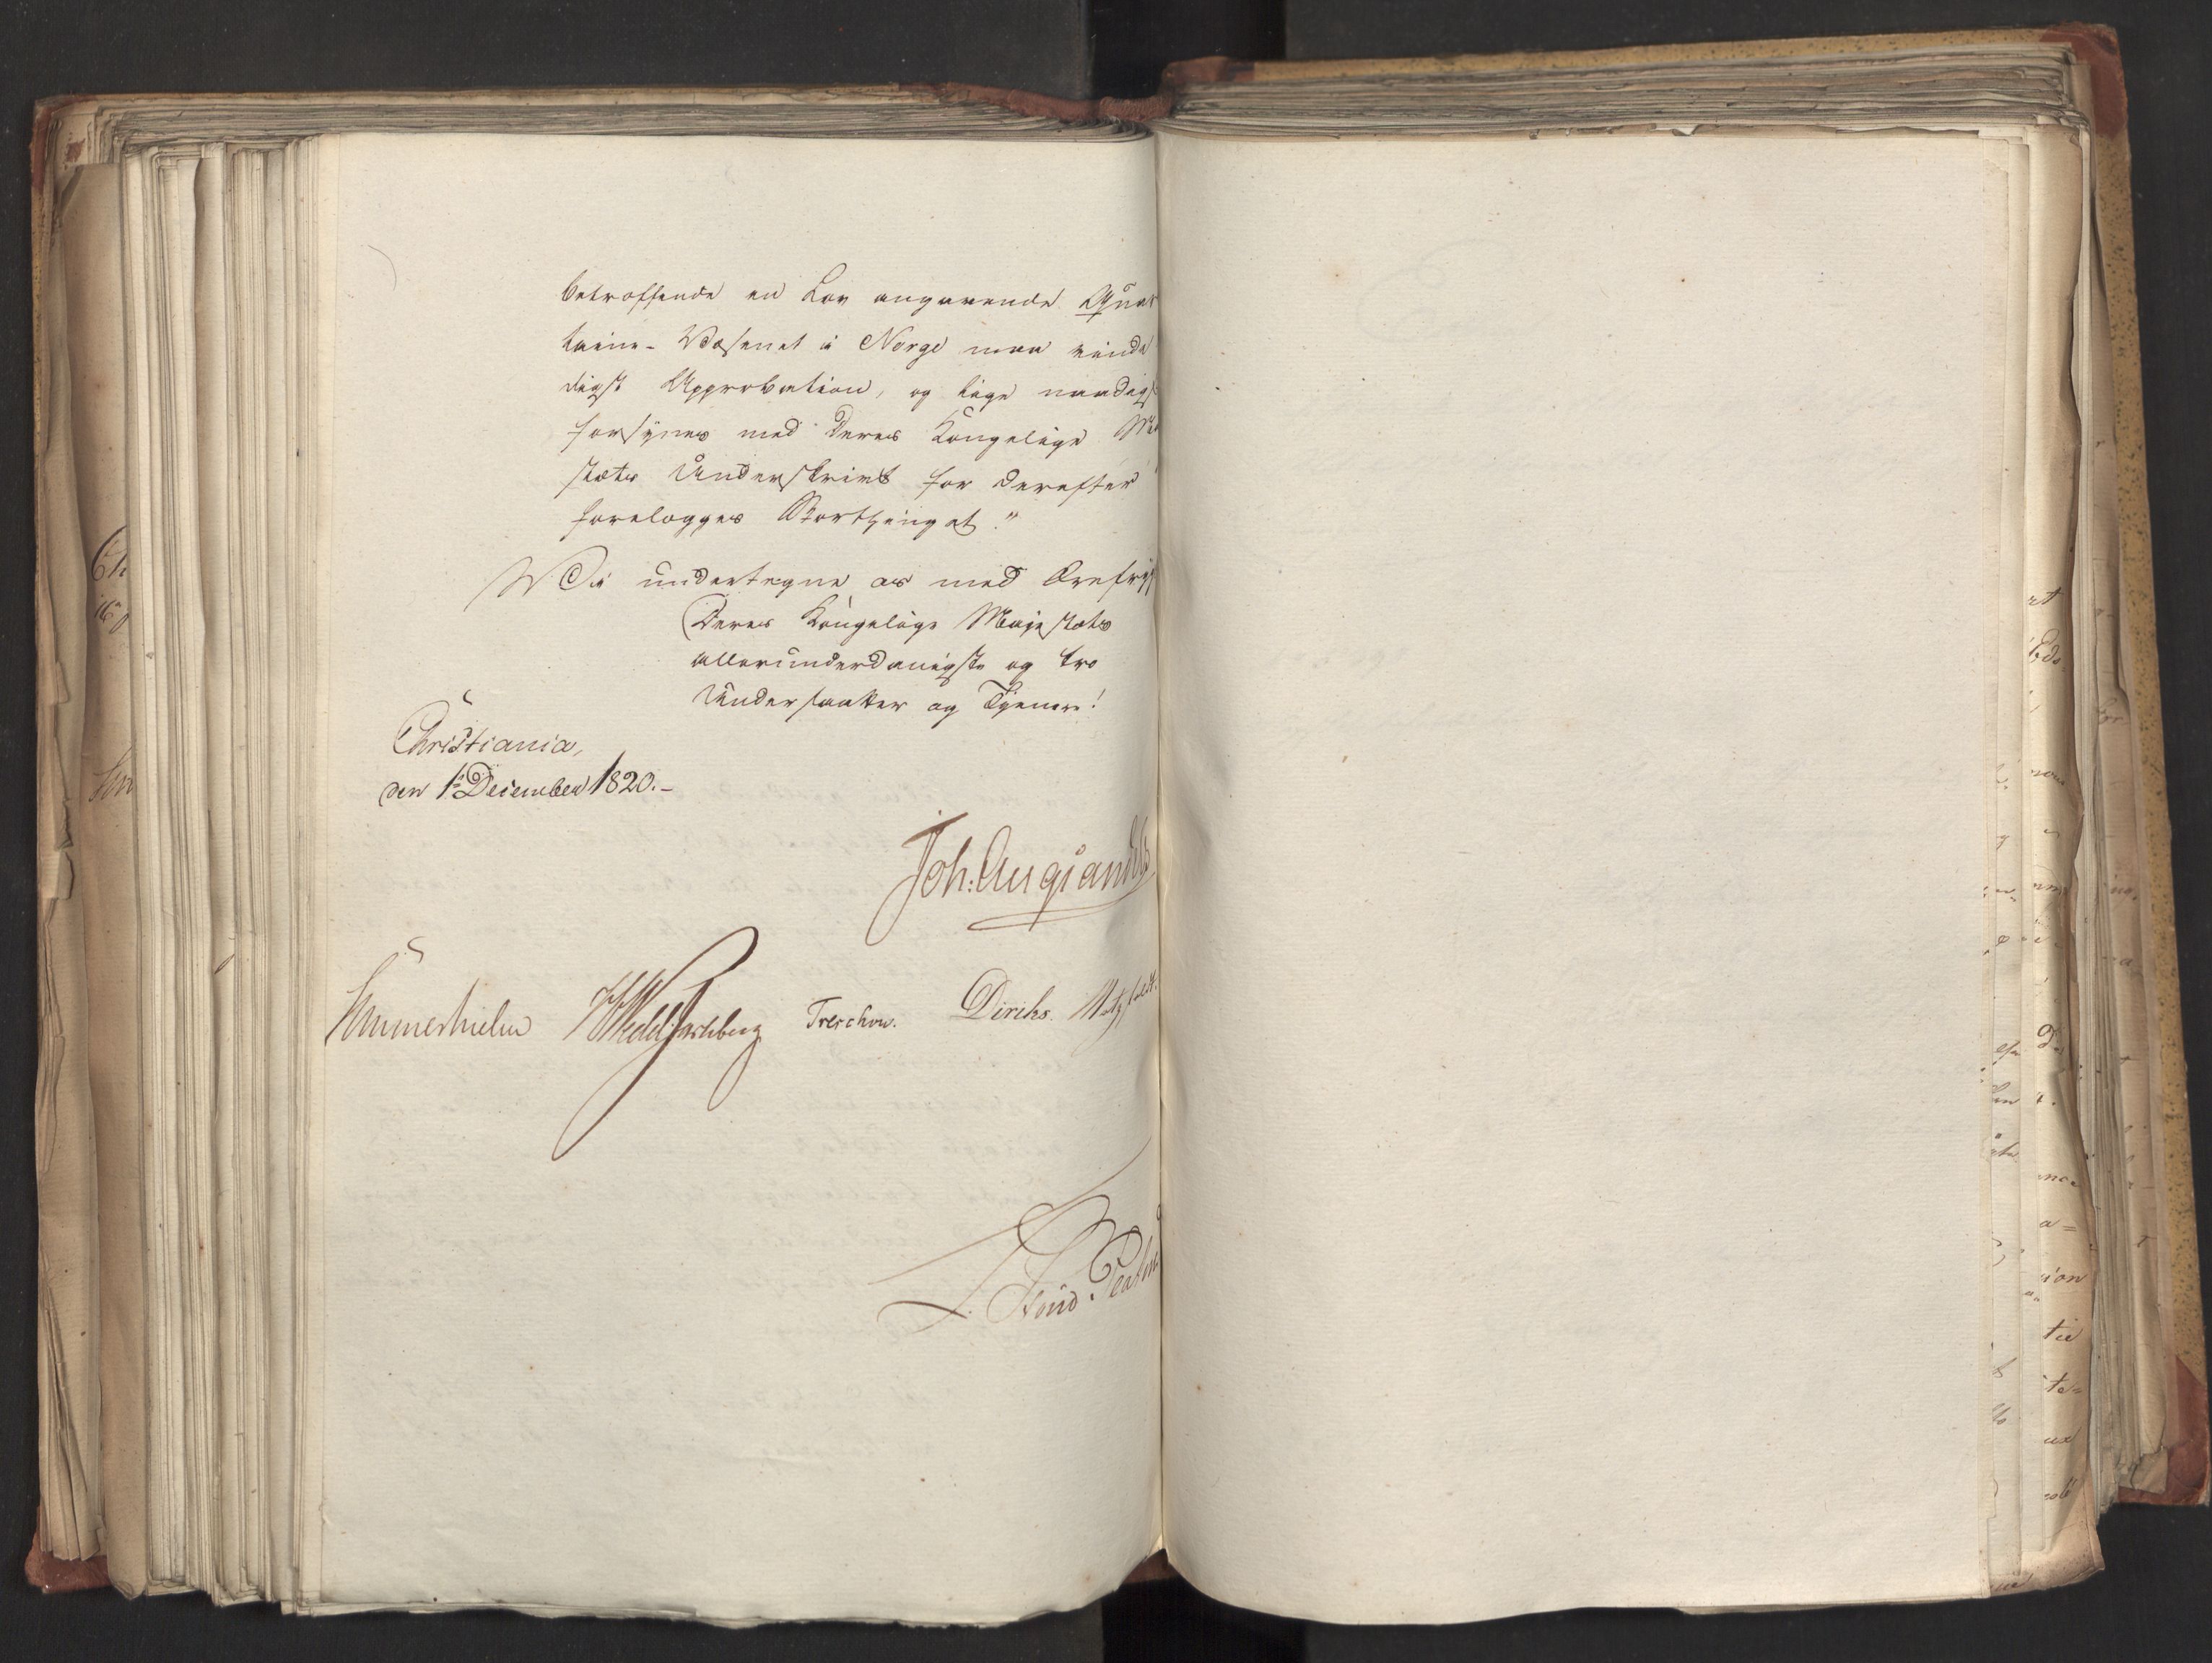 betræffende en Lov angaaende Quar
taine-Væsenet i Norge maa vinde
digst Approbation, og lige naadigst
forsynes med Deres Kongelige Ma
stæts Underskrivt for derefter
forelægges Storthinget."
Vi undertegne os med Ærefrygt
Deres Kongelige Majestæts
allerunderdanigste og tro
Undersaatter og Tjenere!
Christiania,
den 1ste December 1820.-
Joh: Aug: Sandels
Sommerhielm HWedelJarlsberg Treschow. Diriks. Motzfeldt.